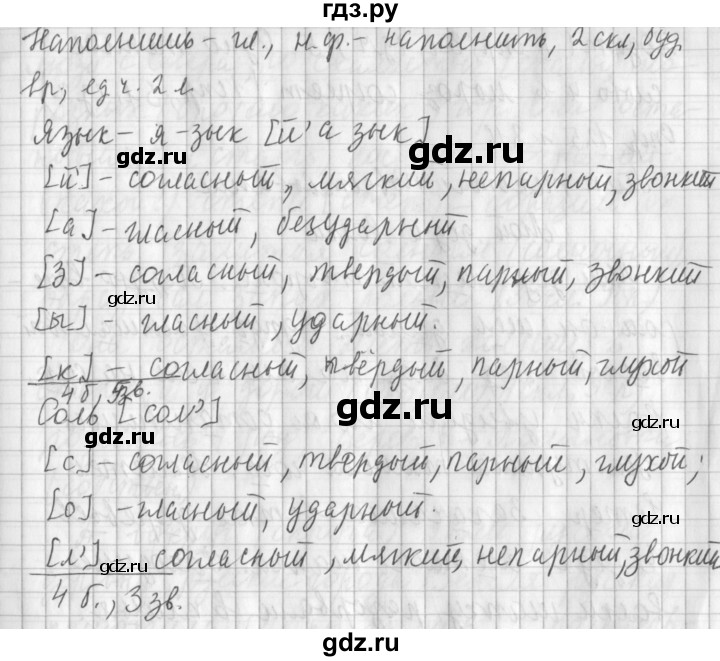 гдз.ру
Наполнишь – гл., н.ф. – наполнить, 2 скл, буд.
вр., ед ч. 2 л.
Язык – я-зык [й'а зык]
gdz.ru gdz.ru
[й'] – согласный, мягкий, непарный, звонкий
[а] – гласный, безударный
gdz.ru
[з] – согласный, твердый, парный, звонкий
gdz.ru
[ы] – гласный, ударный.
[к] – согласный, твёрдый, парный, глухой
4 б, 5 зв.
gdz.ru
Соль [сол']
gdz.ru
[с] – согласный, твёрдый, парный, глухой;
[о] – гласный, ударный.
gdz.ru
[л'] – согласный, мягкий, непарный, звонкий
gdz.ru
4 б., 3 зв.
gdz.ru